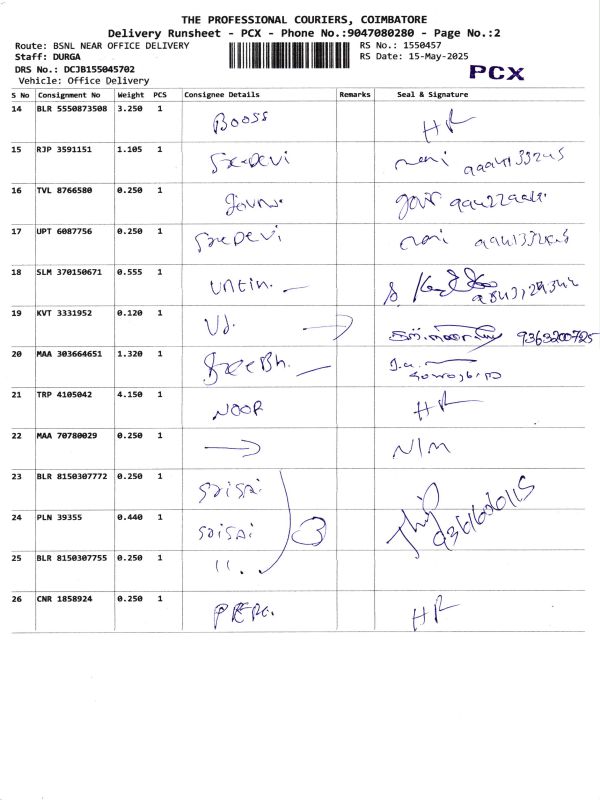 THE PROFESSIONAL COURIERS, COIMBATORE
Delivery Runsheet - PCX - Phone No.:9047080280 - Page No.:2
Route: BSNL NEAR OFFICE DELIVERY RS No.: 1550457
Staff: DURGA RS Date: 15-May-2025
DRS No.: DCJB155045702 PCX
Vehicle: Office Delivery
S No Consignment No Weight PCS Consignee Details Remarks Seal & Signature
14 BLR 5550873508 3.250 1 Booss HR
15 RJP 3591151 1.105 1 SreeDevi
16 TVL 8766580 0.250 1
17 UPT 6087756 0.250 1 SreeDevi
18 SLM 370150671 0.555 1
19 KVT 3331952 0.120 1 9363200725
20 MAA 303664651 1.320 1
21 TRP 4105042 4.150 1 NOOR HR
22 MAA 70780029 0.250 1 → N/M
23 BLR 8150307772 0.250 1 SaiSai
24 PLN 39355 0.440 1 SaiSai 3
25 BLR 8150307755 0.250 1 11.
26 CNR 1858924 0.250 1 HR